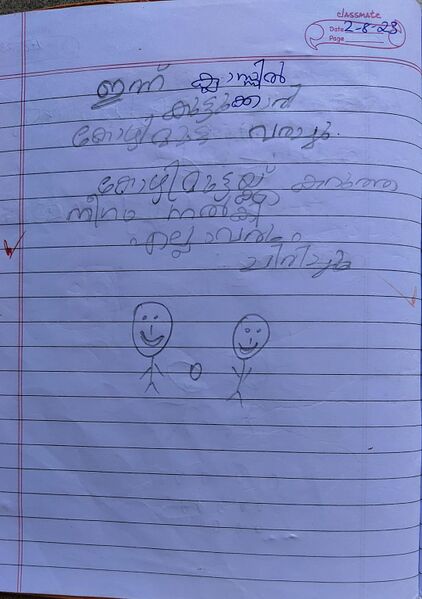 classmate
Date 2-8-23
Page
ഇന്ന് ക്ലാസ്സിൽ
കൂട്ടുക്കാരി
കോഴിമുട്ട വരച്ചു.
കോഴിമുട്ടയ്ക്ക് കറുത്ത
നിറം നൽകി
എല്ലാവരും
ചിരിച്ചു